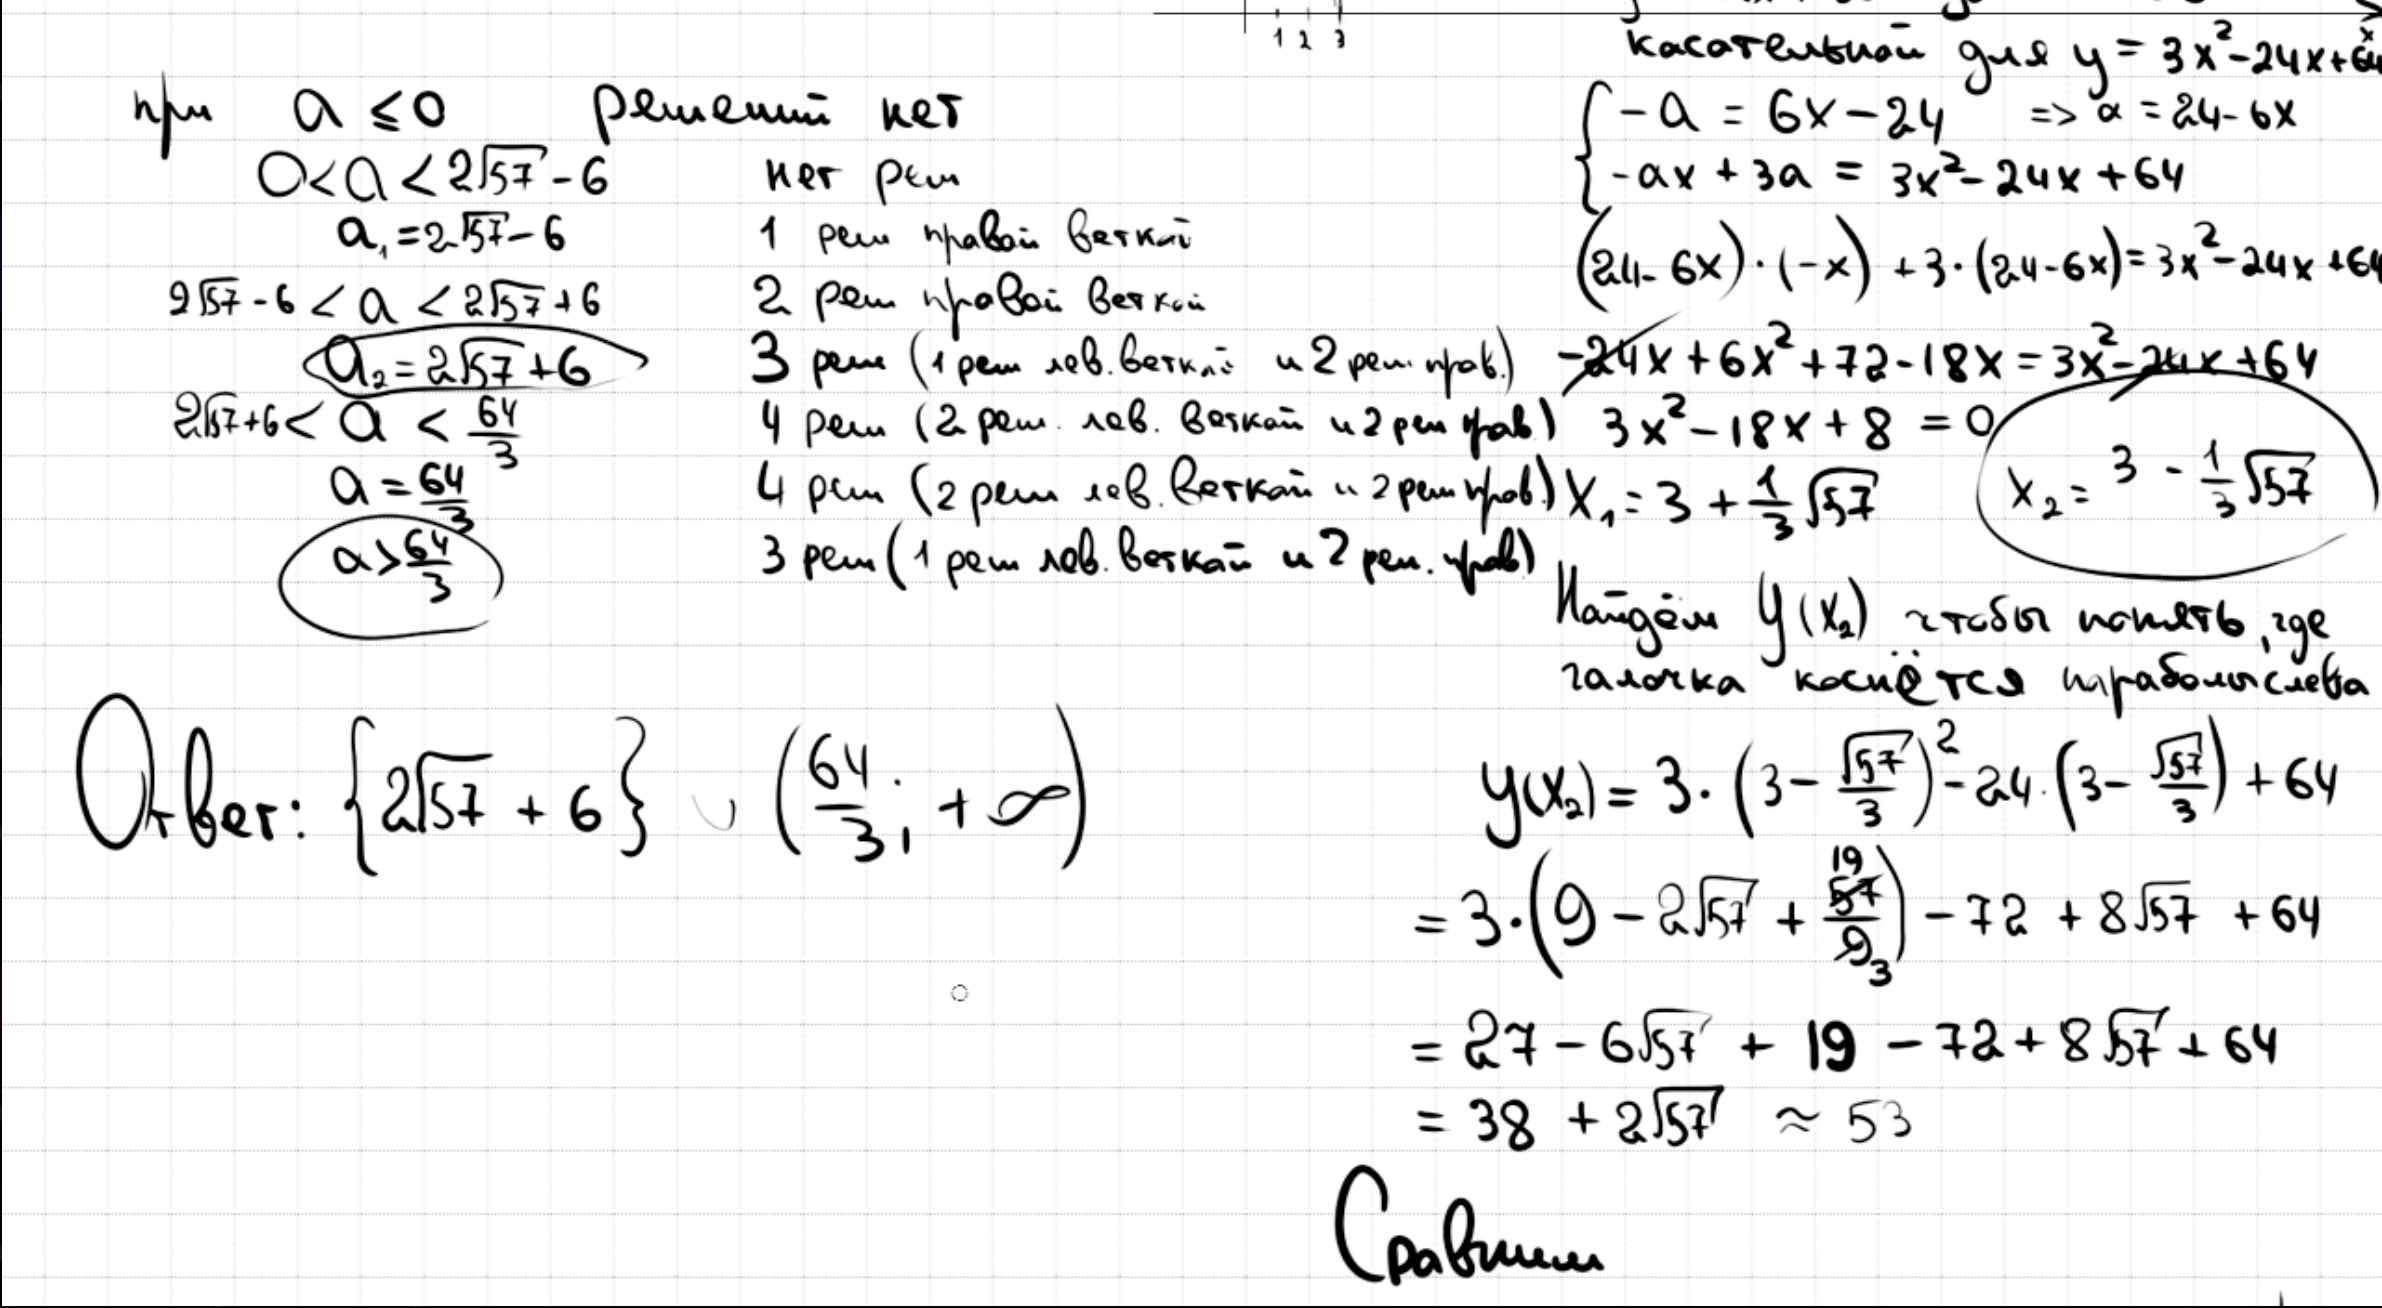 1 2 3
x
касательной для y = 3x²-24x+64
при a ≤ 0 решений нет
0 < a < 2√57 - 6 нет реш
a₁ = 2√57 - 6 1 реш правой веткой
2√57 - 6 < a < 2√57 + 6 2 реш правой веткой
a₂ = 2√57 + 6 3 реш (1 реш лев. веткой и 2 реш. прав.)
2√57 + 6 < a < 64/3 4 реш (2 реш. лев. веткой и 2 реш прав.)
a = 64/3 4 реш (2 реш лев. веткой и 2 реш прав.)
a > 64/3 3 реш (1 реш лев. веткой и 2 реш. прав)
Ответ: {2√57 + 6} ∪ (64/3; +∞)
{ -a = 6x - 24 => a = 24 - 6x
-ax + 3a = 3x² - 24x + 64
(24 - 6x)·(-x) + 3·(24 - 6x) = 3x² - 24x + 64
-24x + 6x² + 72 - 18x = 3x² - 24x + 64
3x² - 18x + 8 = 0
x₁ = 3 + 1/3 √57 x₂ = 3 - 1/3 √57
Найдём y(x₂) чтобы понять, где
галочка коснётся параболы слева
y(x₂) = 3·(3 - √57/3)² - 24·(3 - √57/3) + 64
= 3·(9 - 2√57 + 57/9 19/3) - 72 + 8√57 + 64
= 27 - 6√57 + 19 - 72 + 8√57 + 64
= 38 + 2√57 ≈ 53
Сравним